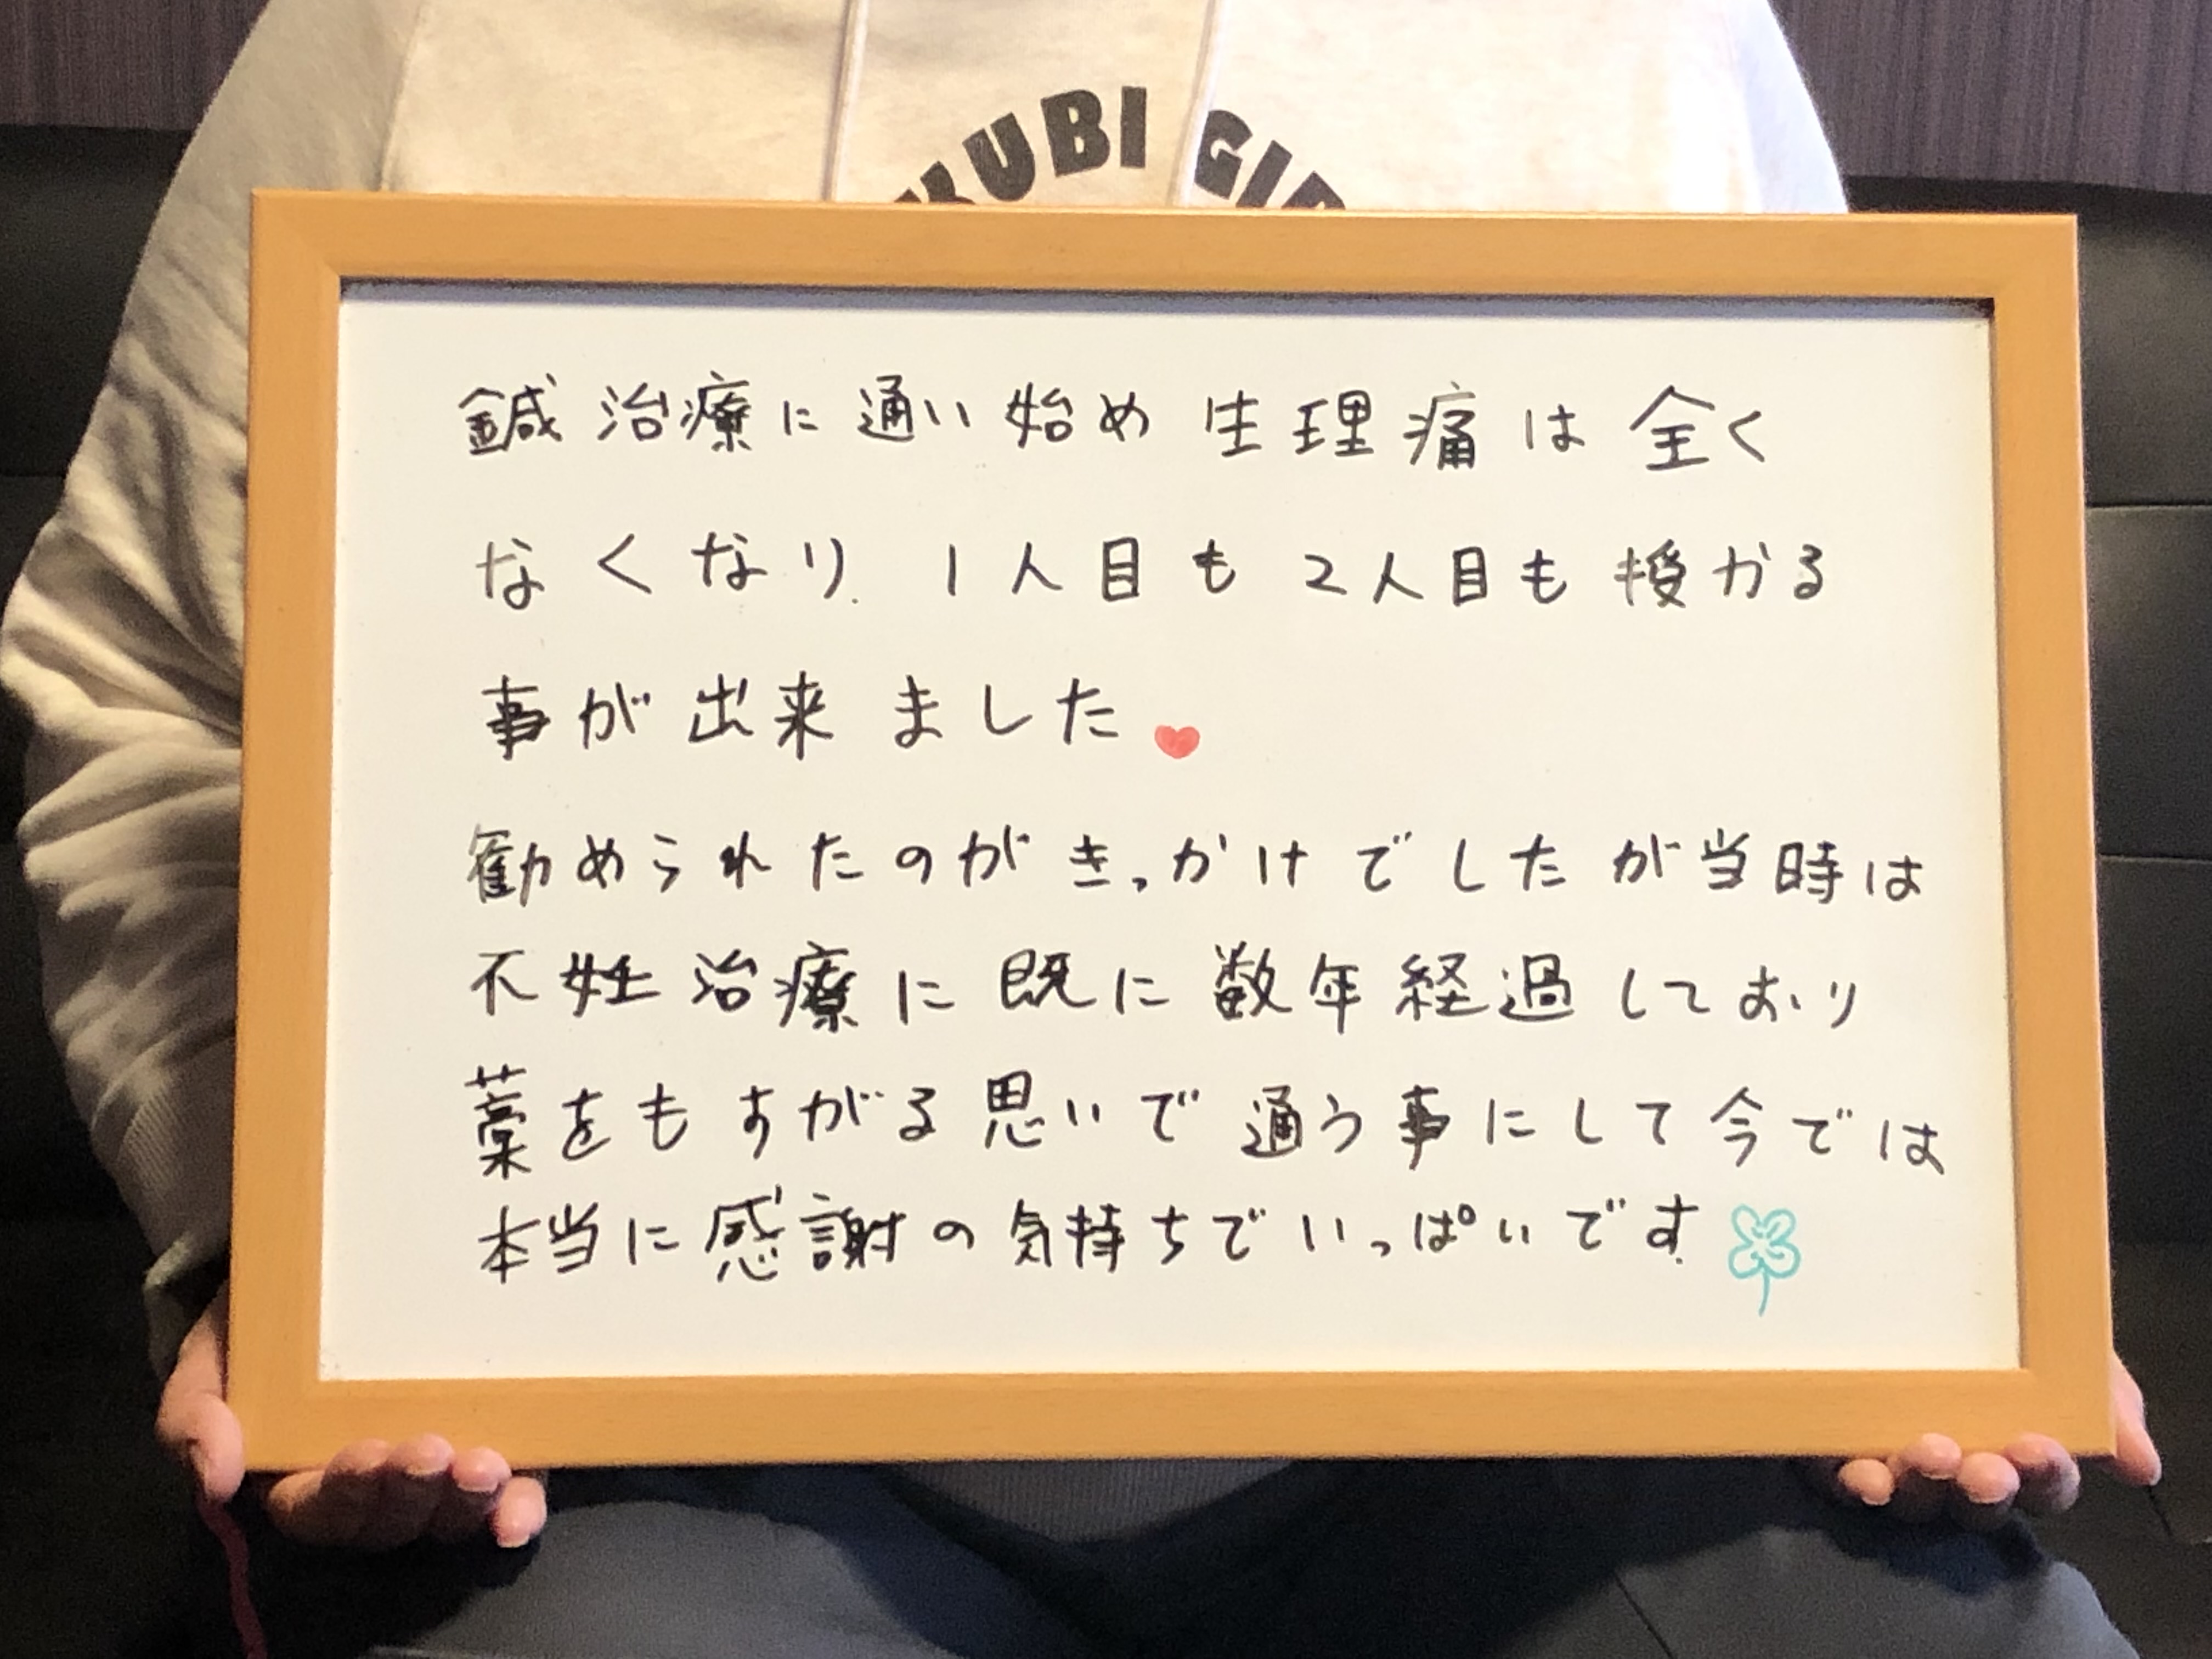 KUBI GI
鍼治療に通い始め生理痛は全く
なくなり、1人目も2人目も授かる
事が出来ました
勧められたのがきっかけでしたが当時は
不妊治療に既に数年経過しており
藁をもすがる思いで通う事にして今では
本当に感謝の気持ちでいっぱいです